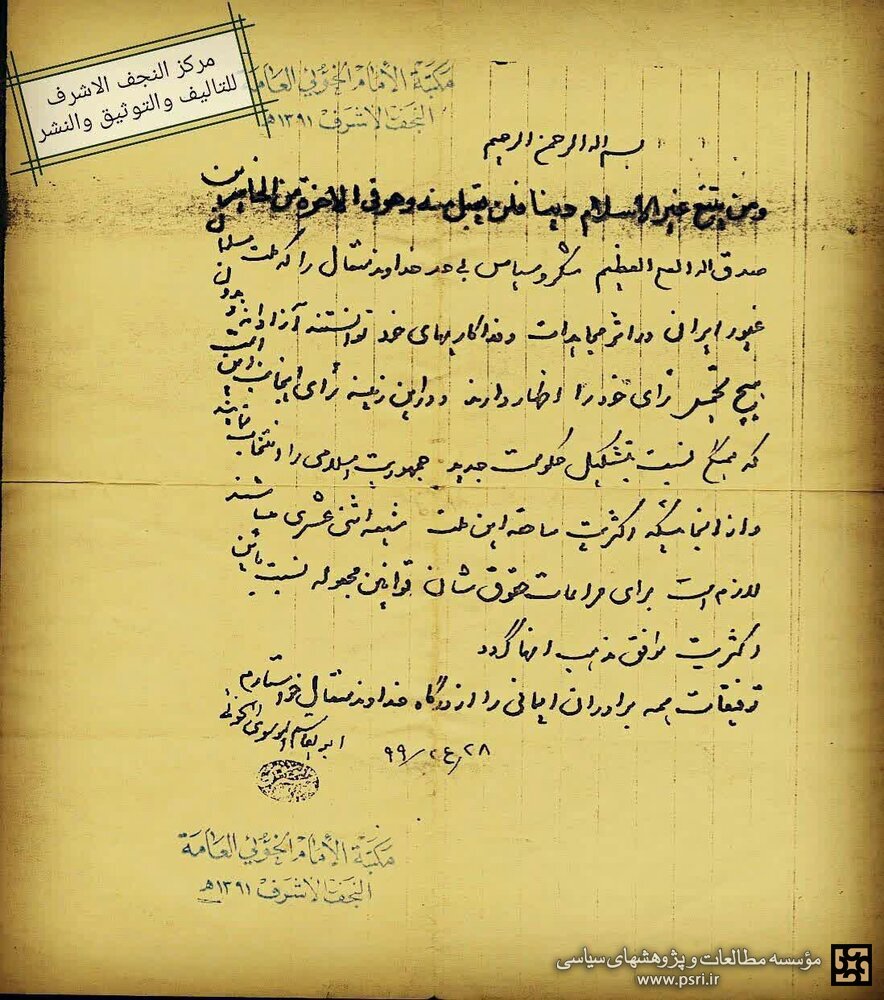 مركز النجف الاشرف
للتاليف والتوثيق والنشر
مكتبة الأمام الخوئي العامة
النجف الاشرف ١٣٩١هـ
بسم الله الرحمن الرحيم
ومن يبتغ غير الاسلام دينا فلن يقبل منه وهو فى الاخرة من الخاسرين
صدق الله العلي العظيم شکر و سپاس بی حد خداوند متعال را که ملت مسلمان
غیور ایران در اثر مجاهدات و فداکاریهای خود توانستند آزادانه و بدون
هیچ تحمیل رأی خود را اظهار دارند و در این زمینه رأی اینجانب این است
که همگی نسبت بتشکیل حکومت جدید جمهوریت اسلامی را انتخاب نمایند
و از آنجائیکه اکثریت ساحقه این ملت شیعه اثنی عشری میباشند
لازم است برای مراعات حقوق شان قوانین مجعوله نسبت باین
اکثریت موافق مذهب انها گردد
توفیقات همه برادران ایمانی را از درگاه خداوند متعال خواستارم
ابوالقاسم الموسوی الخوئی
۲۸/ع۲/۹۹
مكتبة الأمام الخوئي العامة
النجف الاشرف ١٣٩١هـ
مؤسسه مطالعات و پژوهشهای سیاسی
www.psri.ir